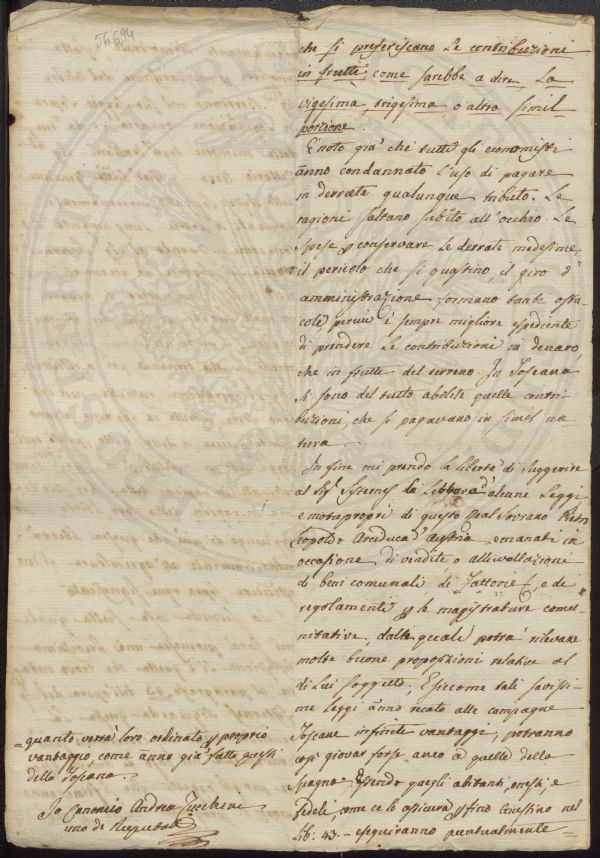 56694
che si preferiscano le contribuzioni
in frutti, come sarebbe a dire, la
vigesima, trigesima o altra simil
porzione.
E' noto già che tutti gli economisti
ànno condannato l'uso di pagare
in derrate qualunque tributo. Le
ragioni saltano subito all'occhio. Le
spese p conservare le derrate medesime,
il pericolo che si guastino, il giro d'
amministrazione formano tanti osta
coli perciò è sempre migliore espediente
di prendere le contribuzioni in denaro,
che in frutti del terreno. In Toscana
si sono del tutto abolite quelle contri-
buzioni, che si pagavano in simil na
tura.
In fine mi prendo la libertà di suggerire
al Sig.r la lettura d'alcune Leggi
e motupropri di questo Real Sovrano Pietro
Leopoldo Arciduca d'Austria emanati in
occasione di vendite, o allivellazioni
di beni comunali di Fattorie, e di
regolamenti p le magistrature comu
nitative, dalle quali potrà rilevare
molte buone proposizioni relative al
di Lui soggetto; E siccome tali savissi-
me Leggi ànno recato alle campagne
Toscane infiniti vantaggi, potranno
così giovar forse anco a quelle della
Spagna. Essendo quegli abitanti, onesti e
fedeli, come ce lo assicura fino Giustino nel
Lib: 43. eseguiranno puntualmente =
= quanto verrà loro ordinato p proprio
vantaggio, come ànno già fatto questi
della Toscana.
Io Canonico Andrea Zucchini
uno de